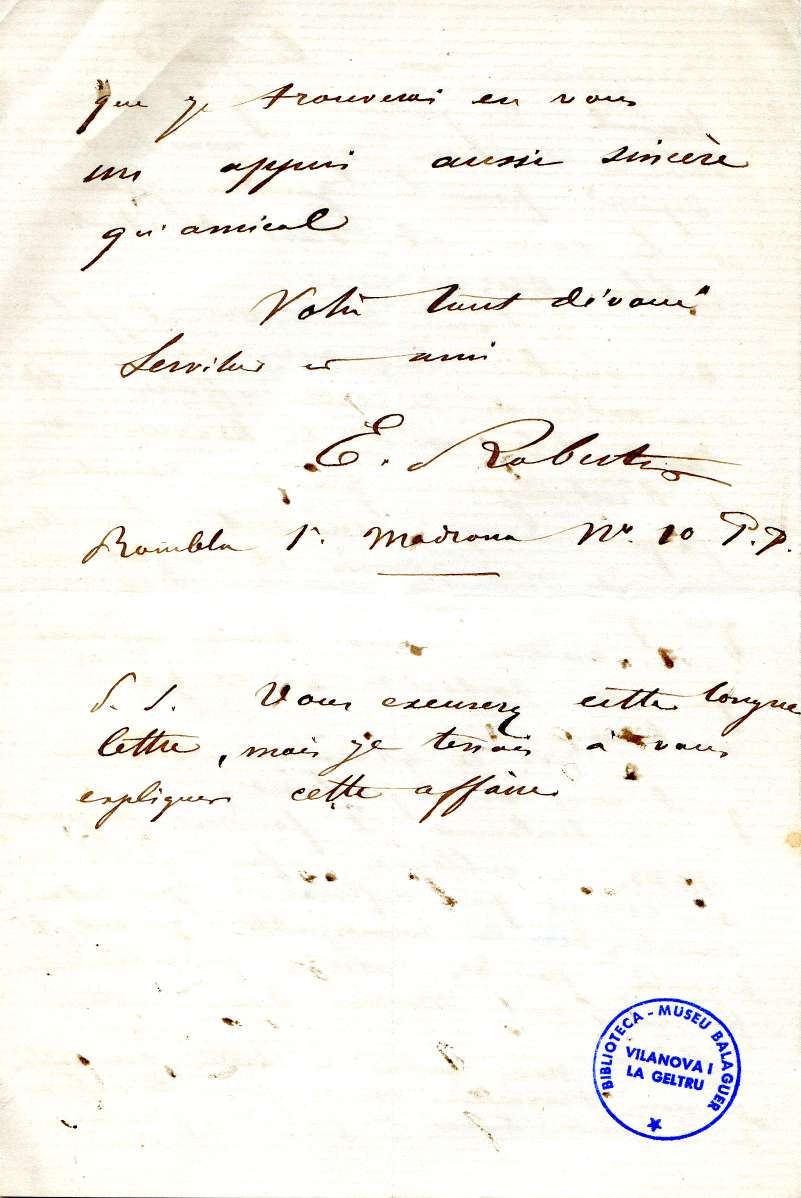 que je trouverai en vous
un appui aussi sincère
qu'amical
Votre tout dévoué
Serviteur et ami
E. Robert
Rambla Sta. Madrona No. 10 P. P.
P. S. Vous excuserez cette longue
lettre, mais je tenais à vous
expliquer cette affaire
BIBLIOTECA - MUSEU BALAGUER
VILANOVA I
LA GELTRU